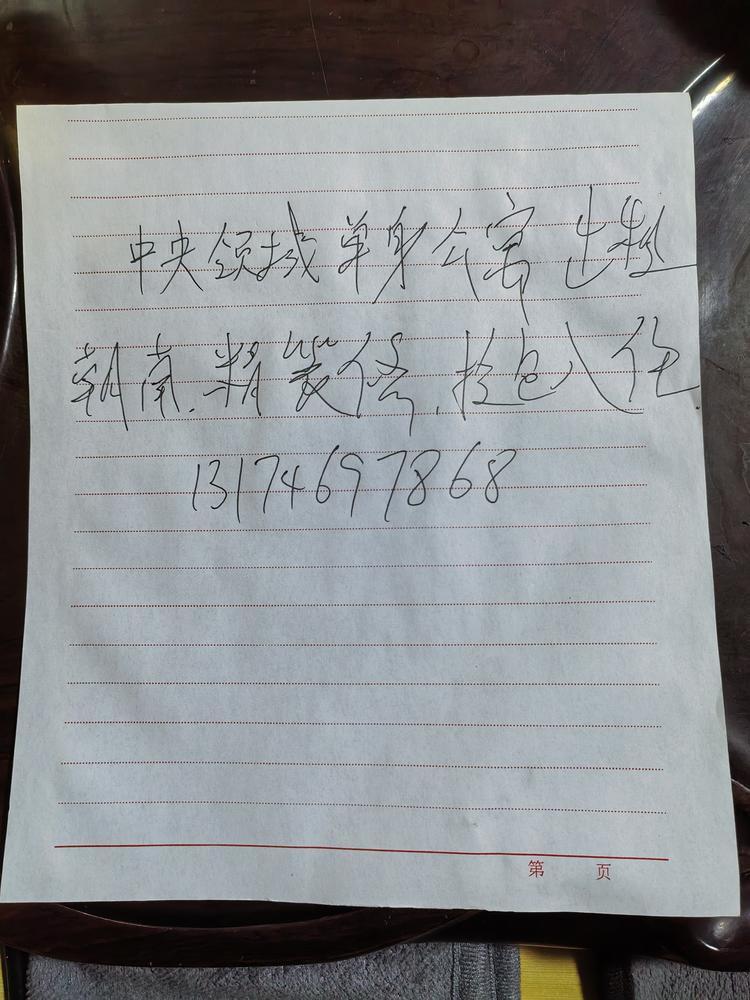 中央领域单身公寓出租
朝南.精装修.拎包入住
13174697868
第 页